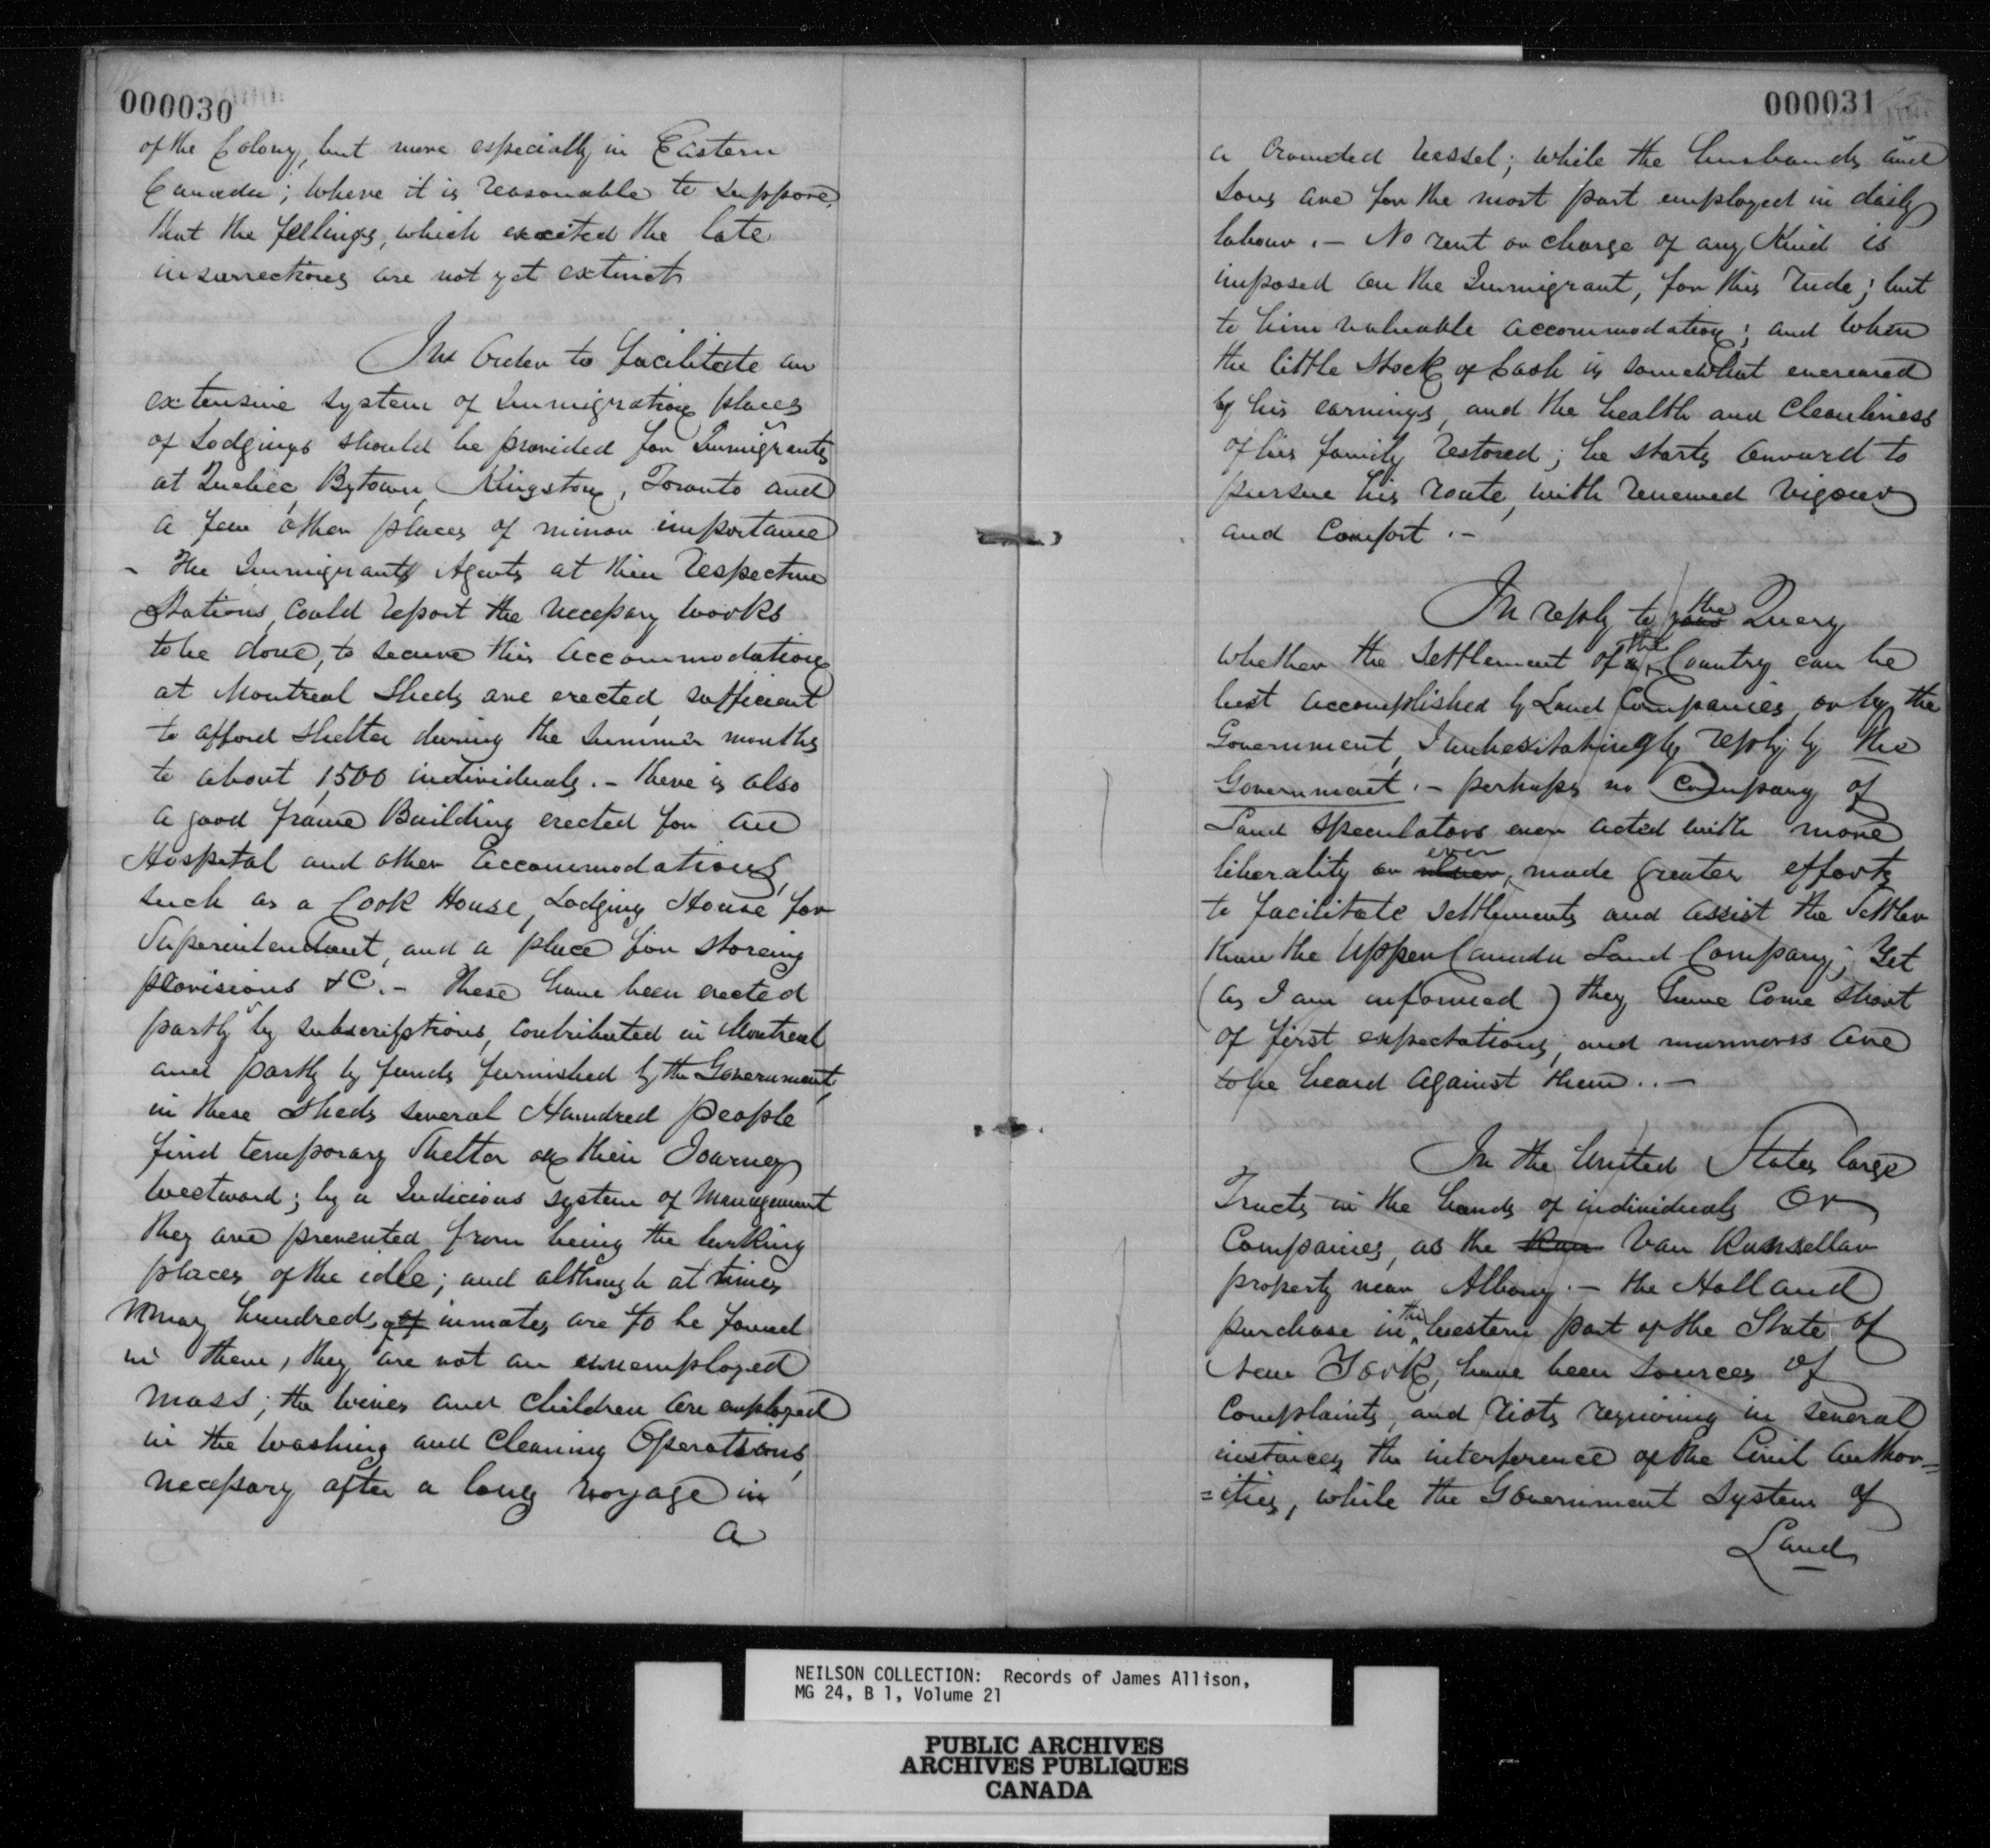 000030
of the Colony, but more especially in Eastern
Canada; where it is reasonable to suppose,
that the feelings, which excited the late
insurrections are not yet extinct
In Order to facilitate an
extensive system of Immigration places
of Lodgings should be provided for Immigrants
at Quebec, Bytown, Kingston, Toronto and
a few other places of minor importance
- The Immigrants Agents at their respective
Stations, could report the necessary works
to be done, to secure this accommodation
at Montreal Sheds are erected, sufficient
to afford shelter during the summer months
to about 1,500 individuals. - there is also
a good frame Building erected for an
Hospital and other accommodations,
such as a Cook House, Lodging House for
Superintendant, and a place for storeing
provisions &C. - These have been erected
partly by subscriptions, contributed in Montreal
and partly by funds furnished by the Government,
in these sheds several Hundred people
find temporary Shelter on their Journey
Westward; by a Judicious system of Management
they are prevented from being the lurking
places of the idle; and although at times
many hundreds of inmates are to be found
in them, they are not an unemployed
mass; the wives and children are employed
in the washing and cleaning Operations,
necessary after a long voyage in
a
000031
a crowded vessel; while the husbands and
sons are for the most part employed in daily
labour. - No rent or charge of any Kind is
imposed on the Immigrant, for this rude; but
to him valuable accommodation; and when
the little stock of Cash is somewhat encreased
by his earnings, and the health and cleanliness
of his family restored; he starts onward to
pursue his route, with renewed vigour
and Comfort. -
In reply to your the Query
whether the settlement of a the Country can be
best accomplished by Land Companies, or by the
Government, I unhesitatingly reply by the
Government. - perhaps no Company of
Land speculators ever acted with more
liberality or ever, made greater efforts
to facilitate settlements and assist the Settler
than the Upper Canada Land Company; Yet
(as I am informed) they have come short
of first expectations, and murmurs are
to be heard against them.. -
In the United States large
Tracts in the hands of individuals or
Companies, as the Ran Van Ranssellar
property near Albany. - the Holland
purchase in the western part of the State of
New York, have been sources of
Complaints, and riots requiring in several
instances the interference of the Civil author=
=ities, while the Government system of
Land
NEILSON COLLECTION: Records of James Allison,
MG 24, B 1, Volume 21
PUBLIC ARCHIVES
ARCHIVES PUBLIQUES
CANADA